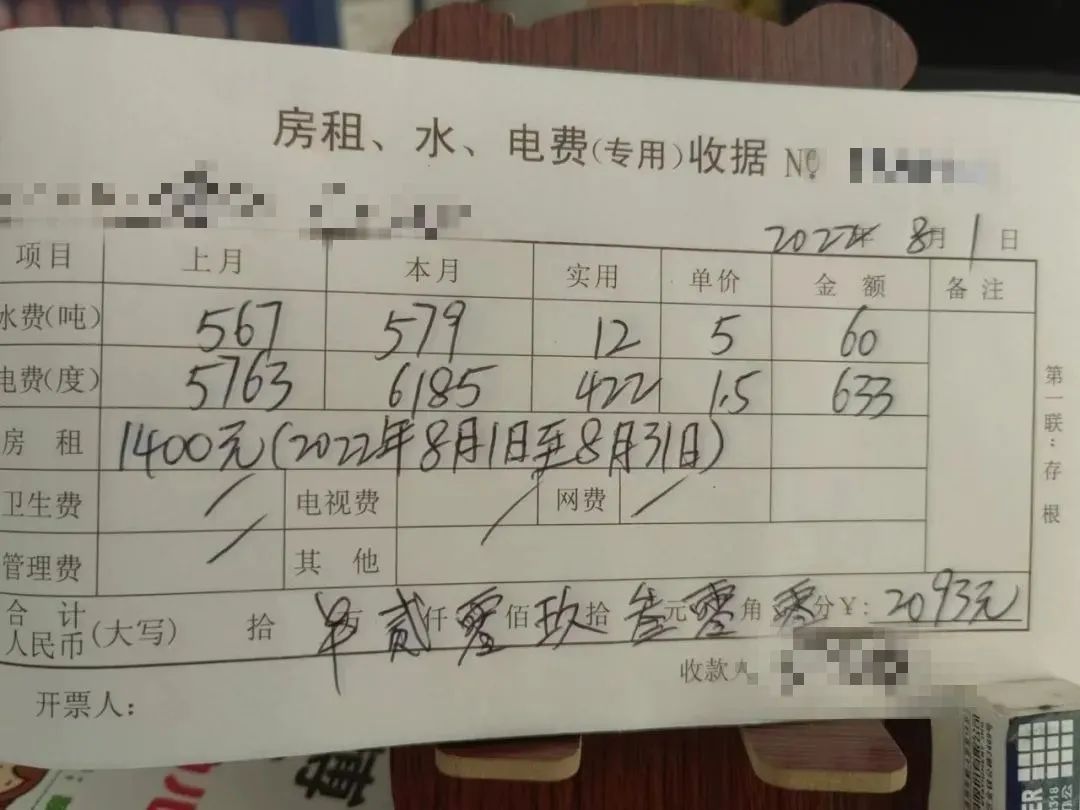 房租、水、电费(专用)收据 №
2022年 8月 1日
项目 上月 本月 实用 单价 金额 备注
水费(吨) 567 579 12 5 60
电费(度) 5763 6185 422 1.5 633
房租 1400元(2022年8月1日至8月31日)
卫生费 / 电视费 / 网费 /
管理费 / 其他
合计
人民币(大写) 拾 万 贰仟 零佰 玖拾 叁元 零角 零分 ¥: 2093元
收款人
开票人:
第一联:存根